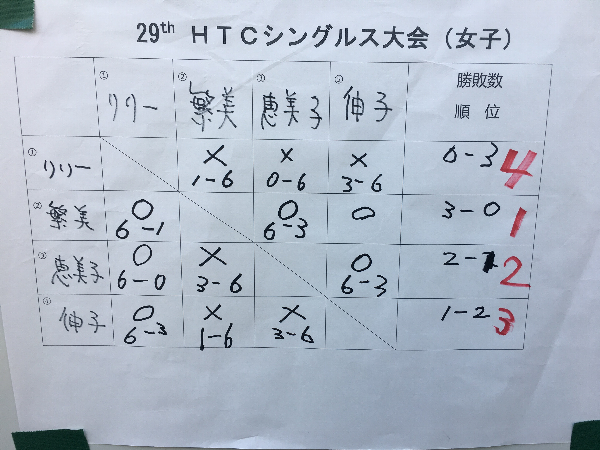 29th HTCシングルス大会（女子）
① ② ③ ④ 勝敗数
リリー 繁美 恵美子 伸子 順 位
① リリー × 1-6 × 0-6 × 3-6 0-3 4
② 繁美 ○ 6-1 ○ 6-3 ○ 3-0 1
③ 恵美子 ○ 6-0 × 3-6 ○ 6-3 2-1 2
④ 伸子 ○ 6-3 × 1-6 × 3-6 1-2 3